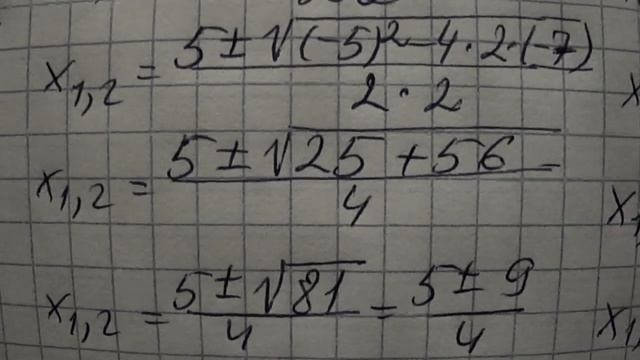 x₁,₂ = (5 ± √((-5)² - 4 · 2 · (-7))) / (2 · 2)
x₁,₂ = (5 ± √(25 + 56)) / 4
x₁,₂ = (5 ± √81) / 4 = (5 ± 9) / 4